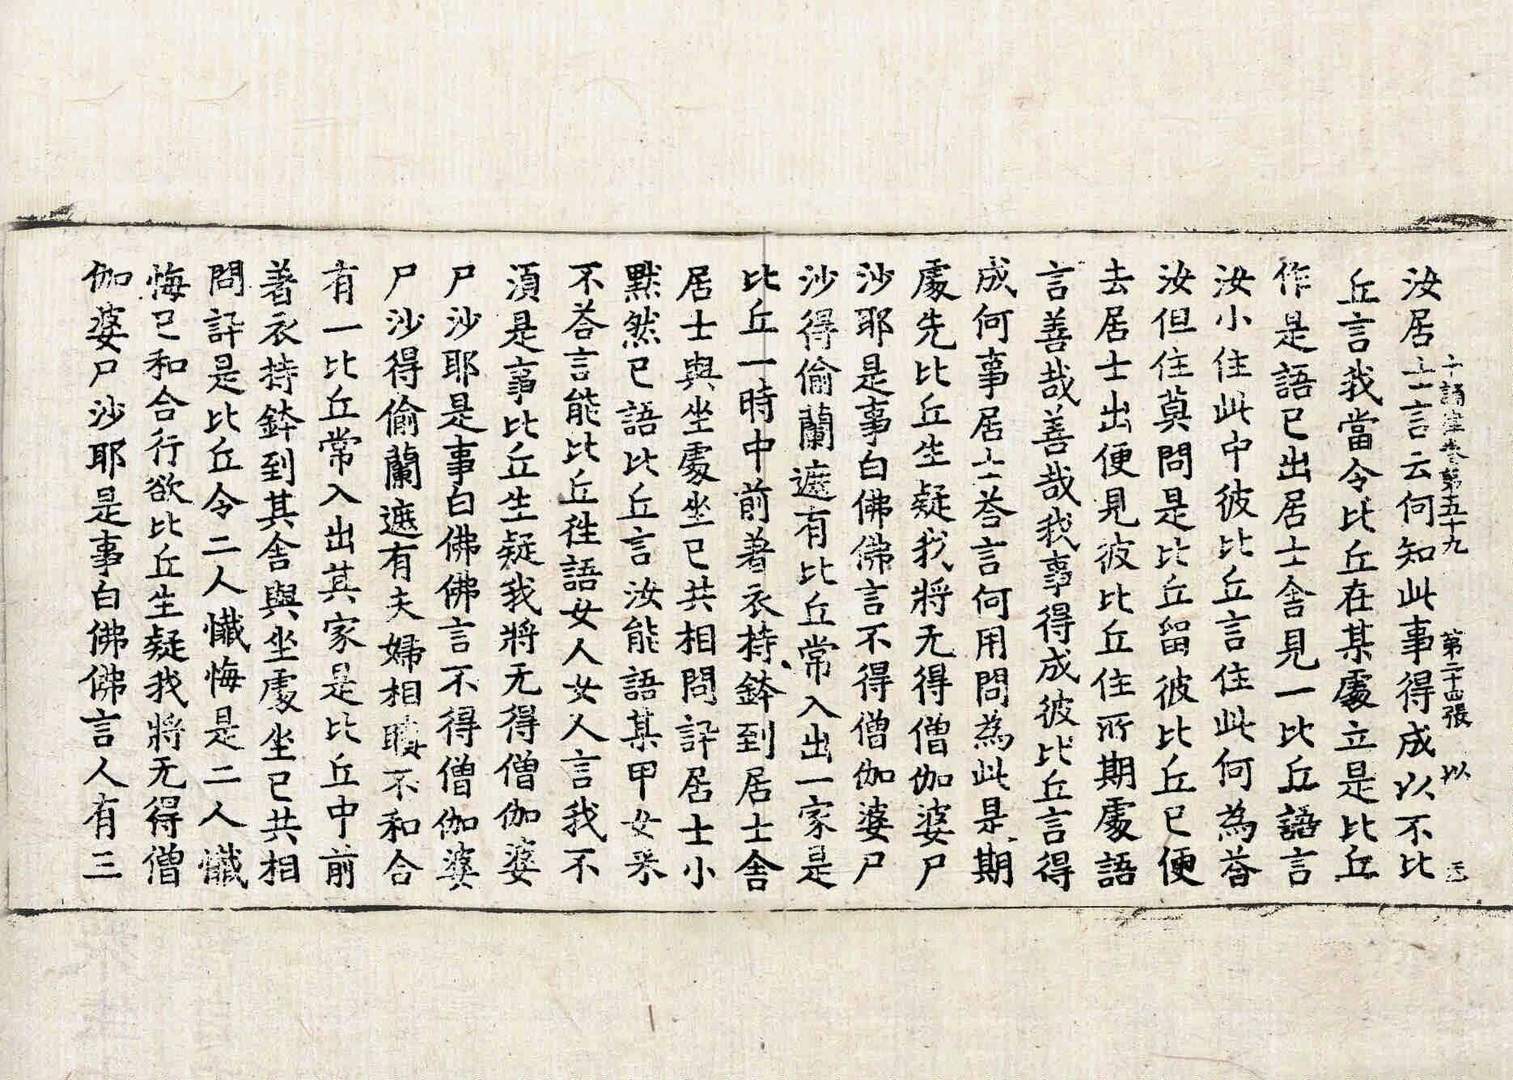 十誦律卷第五十九 第二十四張 以
汝居士言云何知此事得成以不比
丘言我當令比丘在某處立是比丘
作是語已出居士舍見一比丘語言
汝小住此中彼比丘言住此何為荅
汝但住莫問是比丘留彼比丘已便
去居士出便見彼比丘住所期處語
言善哉善哉我事得成彼比丘言得
成何事居士荅言何用問為此是期
處先比丘生疑我將无得僧伽婆尸
沙耶是事白佛佛言不得僧伽婆尸
沙得偷蘭遮有比丘常入出一家是
比丘一時中前著衣持鉢到居士舍
居士與坐處坐已共相問訊居士小
默然已語比丘言汝能語某甲女来
不荅言能比丘徃語女人女人言我不
湏是事比丘生疑我將无得僧伽婆
尸沙耶是事白佛佛言不得僧伽婆
尸沙得偷蘭遮有夫婦相瞋不和合
有一比丘常入出其家是比丘中前
著衣持鉢到其舍與坐處坐已共相
問訊是比丘令二人懺悔是二人懺
悔已和合行欲比丘生疑我將无得僧
伽婆尸沙耶是事白佛佛言人有三